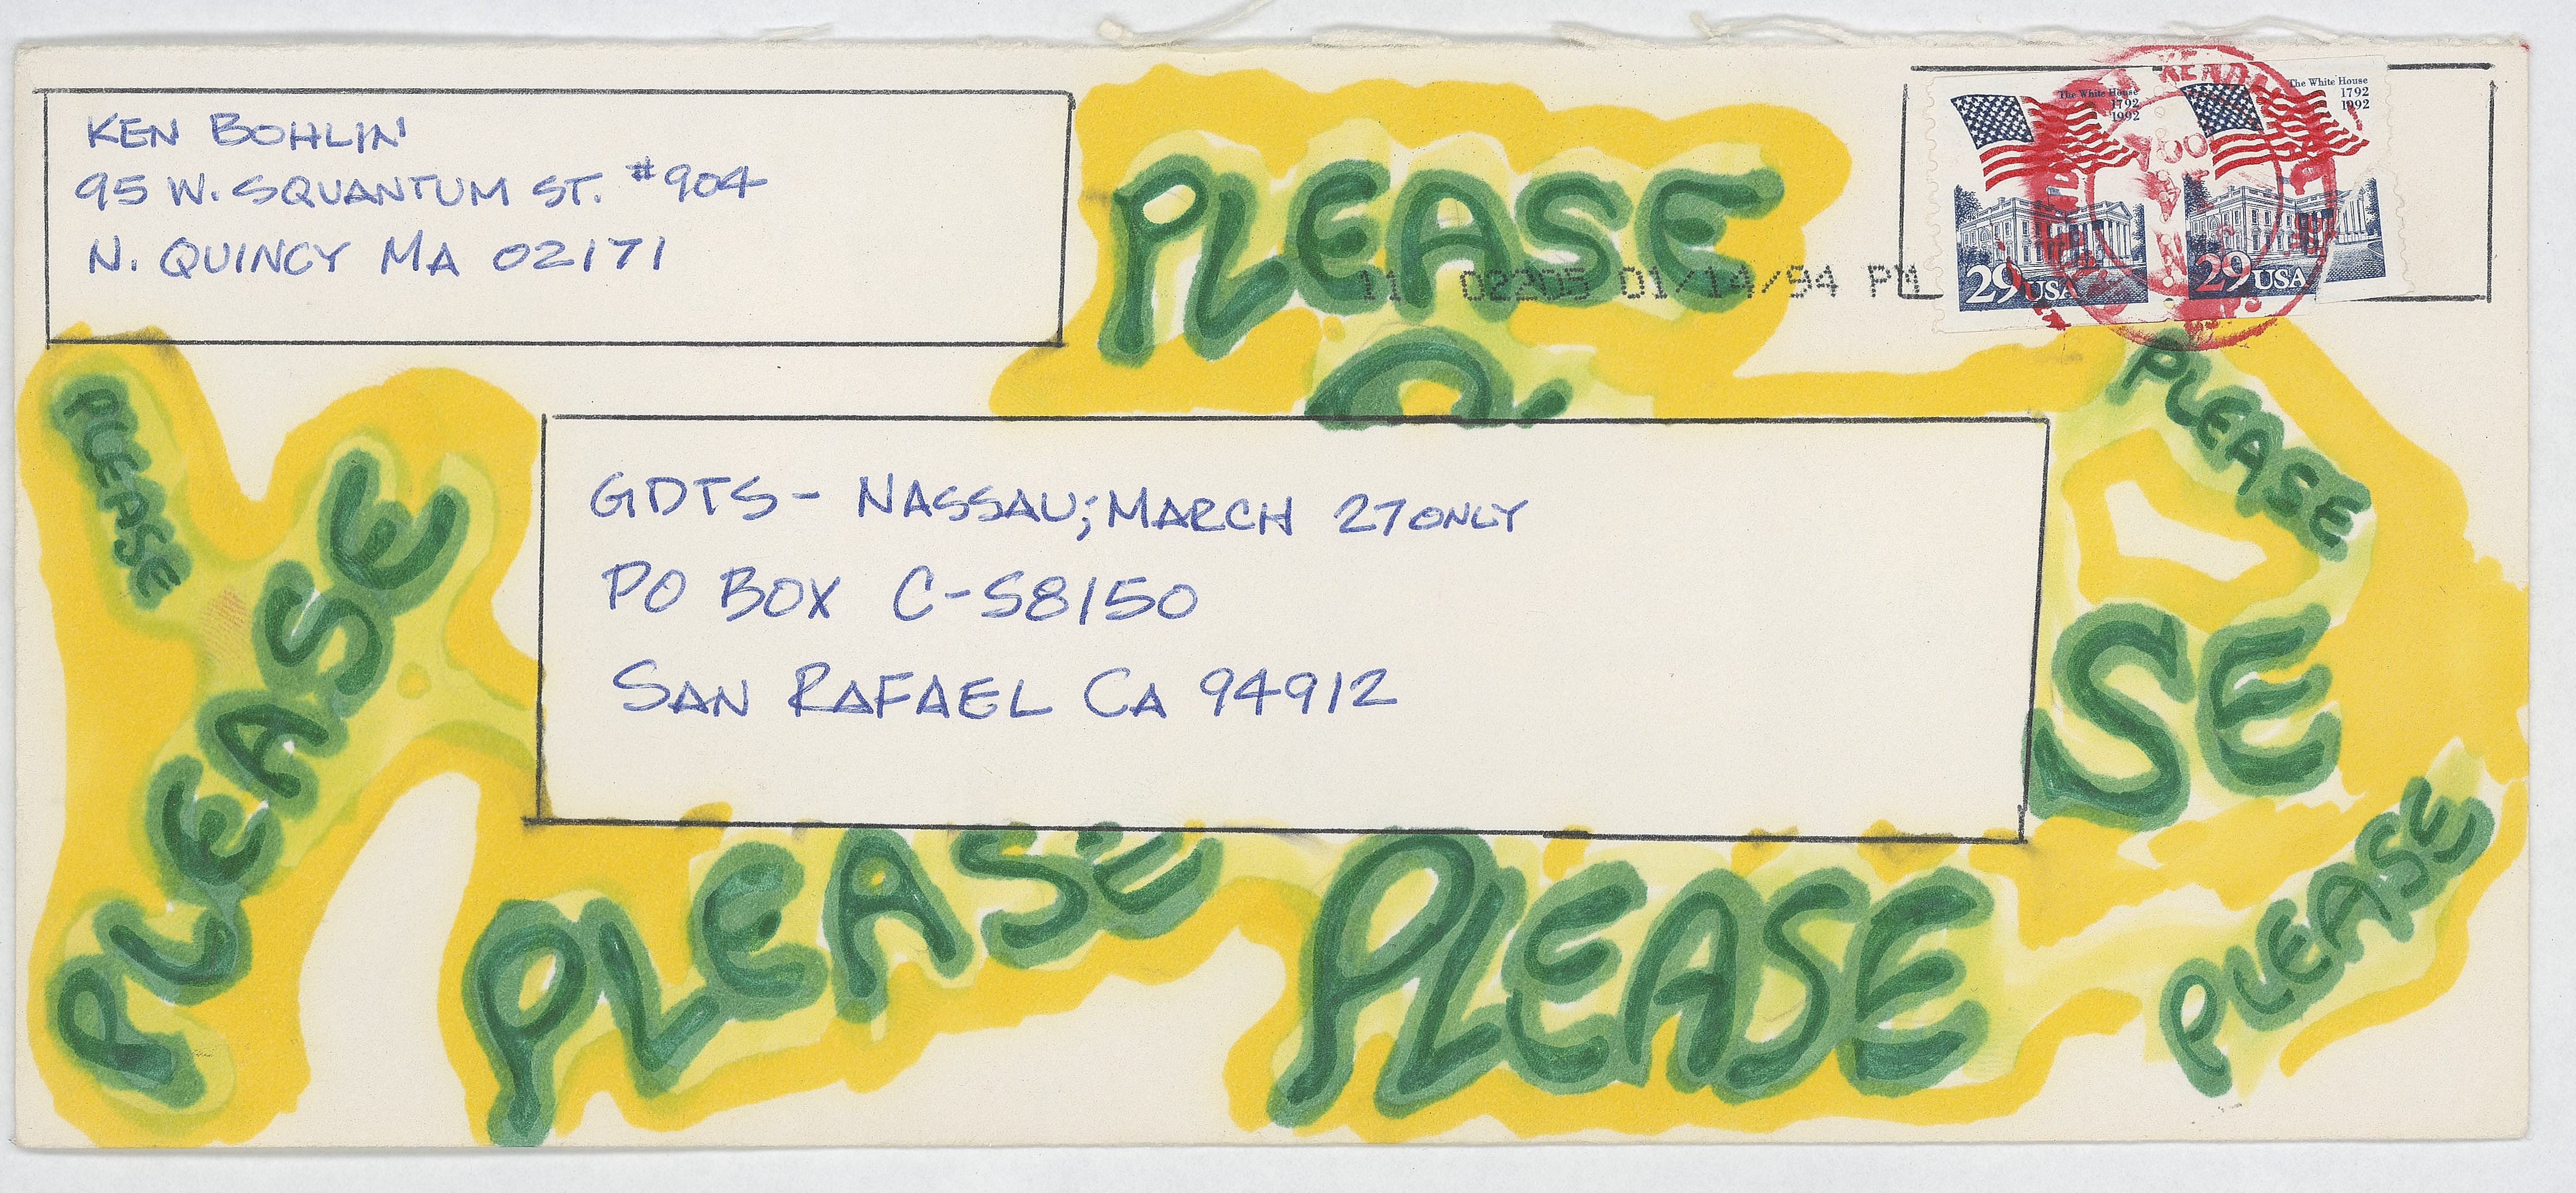 KEN BOHLIN
95 W. SQUANTUM ST. #904
N. QUINCY MA 02171
PLEASE
11 02205 01/14/94 PM
The White House
1792
1992
29 USA
The White House
1792
1992
29 USA
PLEASE
PLEASE
PLEASE
GDTS - NASSAU; MARCH 27 ONLY
PO BOX C-S8150
SAN RAFAEL CA 94912
SE
PLEASE
PLEASE
PLEASE